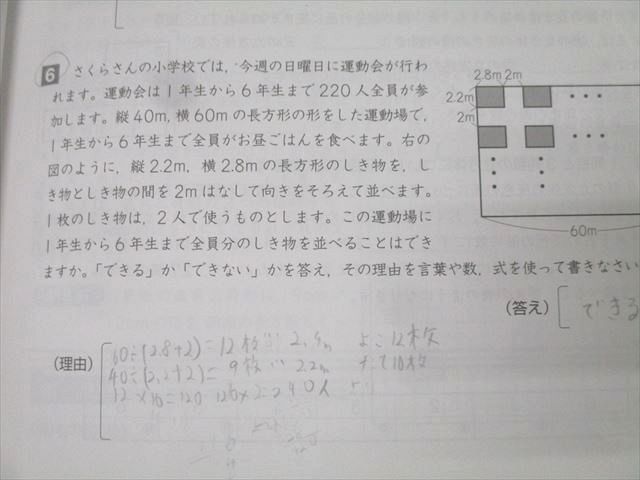 6 さくらさんの小学校では、今週の日曜日に運動会が行わ
れます。運動会は1年生から6年生まで220人全員が参
加します。縦40m、横60mの長方形の形をした運動場で、
1年生から6年生まで全員がお昼ごはんを食べます。右の
図のように、縦2.2m、横2.8mの長方形のしき物を、し
き物としき物の間を2mはなして向きをそろえて並べます。
1枚のしき物は、2人で使うものとします。この運動場に
1年生から6年生まで全員分のしき物を並べることはでき
ますか。「できる」か「できない」かを答え、その理由を言葉や数、式を使って書きなさい
2.8m 2m
2.2m
2m
60m
(答え) できる
(理由)
60÷(2.8+2)=12枚 2.4m よこ12枚
40÷(2.2+2)=9枚 2.2m たて10枚
12×10=120 120×2=240人